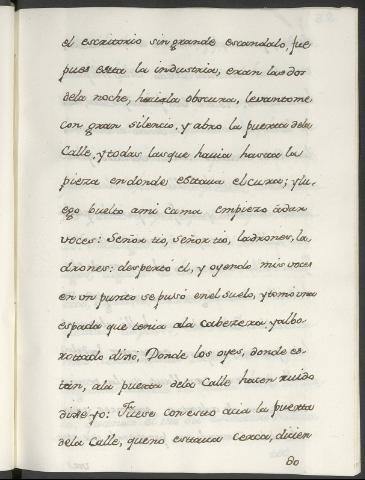 el escritorio sin grande escandalo, fue
pues esta la industria, eran las dos
dela noche, hacia obscura, levantome
con gran silencio, y abro la puerta dela
Calle, y todas las que havia hasta la
pieza en donde estava el cura; y lu-
ego buelto a mi cama empiezo á dar
voces: Señor tio, Señor tio, ladrones, la-
drones: despertó él, y oyendo mis voces
en un punto se pusó en el suelo, y tomó una
espada que tenia ala cabezera, y albo-
rotado dixo, Donde los oyes, donde es-
tán, ala puerta dela Calle hacen ruido
dixe yo: Fuese con esto acia la puerta
dela Calle, que no estava cerca, dicien
do